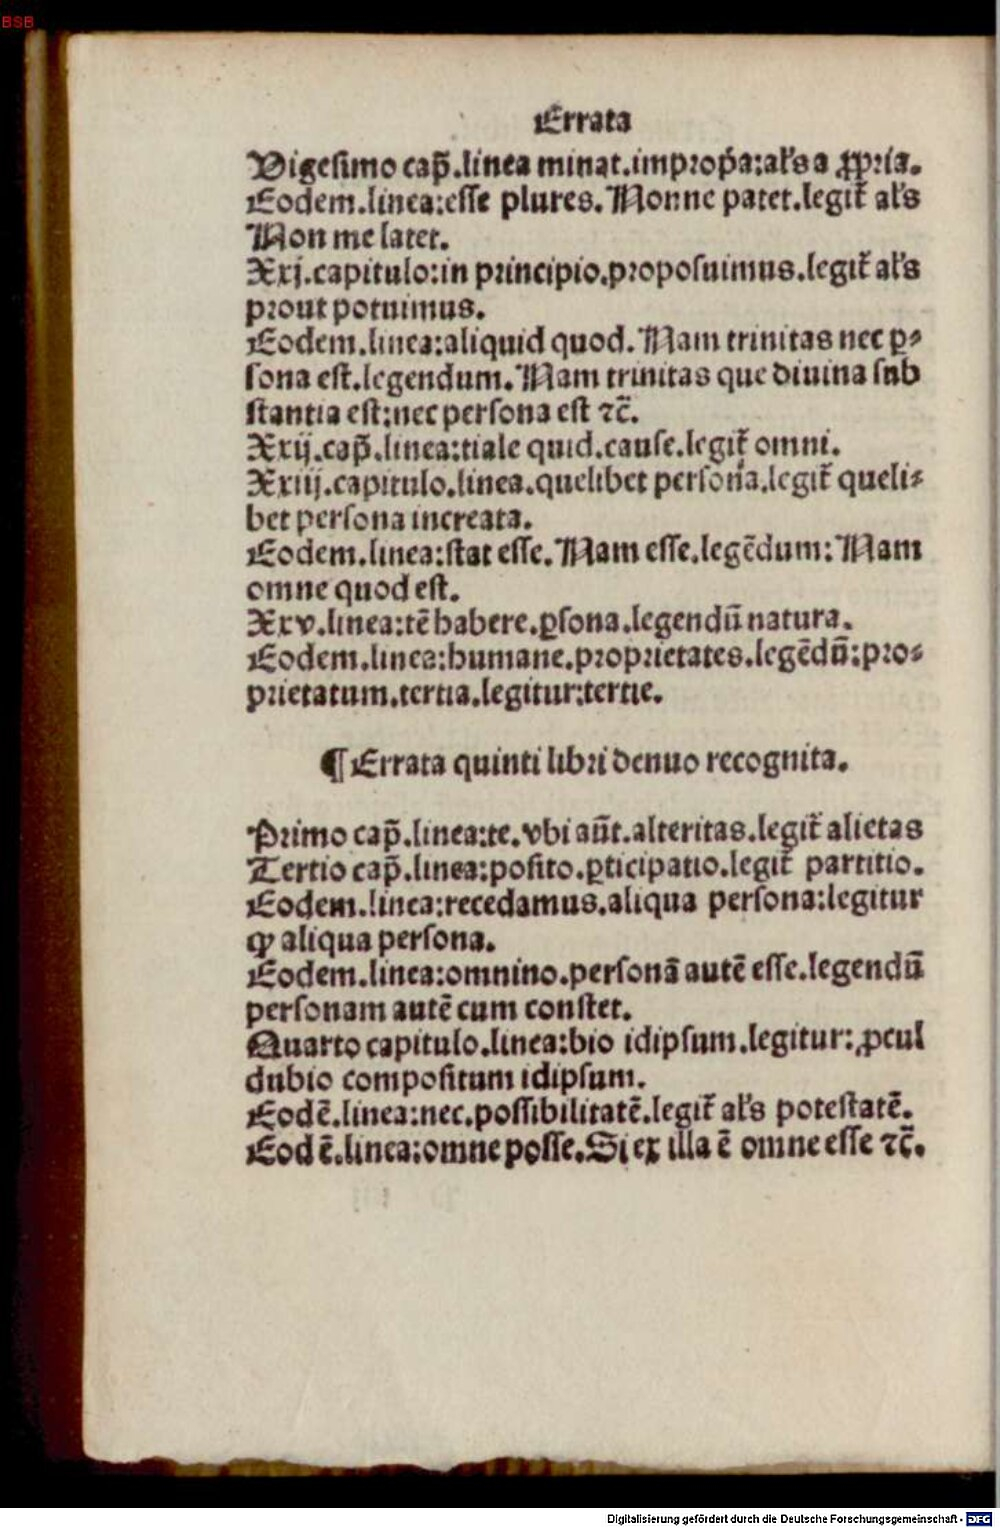 BSB
Errata
Uigesimo cap̃.linea minat.impropͥa:al's a ꝓpria.
Eodem.linea:esse plures.Nonne patet.legit᷑ al's
Non me latet.
Xxj.capitulo:in principio.proposuimus.legit᷑ al's
prout potuimus.
Eodem.linea:aliquid quod.Nam trinitas nec ꝑ⸗
sona est.legendum.Nam trinitas que diuina sub
stantia est:nec persona est ⁊c̃.
Xxij.cap̃.linea:tiale quid.cause.legit᷑ omni.
Xxiij.capitulo.linea.quelibet persona.legit᷑ queli⸗
bet persona increata.
Eodem.linea:stat esse.Nam esse.legẽdum:Nam
omne quod est.
Xxv.linea:tẽ habere.ꝑsona.legendũ natura.
Eodem.linea:humane.proprietates.legẽdũ:pro⸗
prietatum.tertia.legitur:tertie.
¶Errata quinti libri denuo recognita.
Primo cap̃.linea:te.vbi aũt.alteritas.legit᷑ alietas
Tertio cap̃.linea:posito.ꝑticipatio.legit᷑ partitio.
Eodem.linea:recedamus.aliqua persona:legitur
ꝙ aliqua persona.
Eodem.linea:omnino.personã autẽ esse.legendũ
personam autẽ cum constet.
Quarto capitulo.linea:bio idipsum.legitur:ꝓcul
dubio compositum idipsum.
Eodẽ.linea:nec.possibilitatẽ.legit᷑ al's potestatẽ.
Eodẽ.linea:omne posse.Si ex illa ẽ omne esse ⁊c̃.
Digitalisierung gefördert durch die Deutsche Forschungsgemeinschaft - DFG